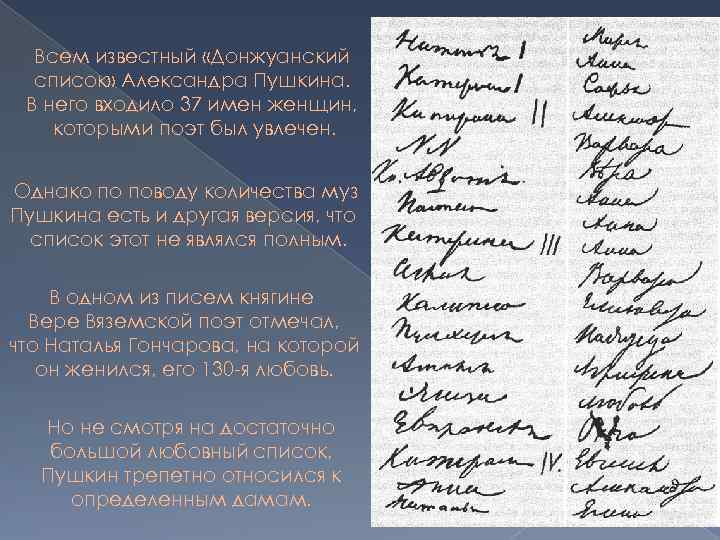 Всем известный «Донжуанский
список» Александра Пушкина.
В него входило 37 имен женщин,
которыми поэт был увлечен.
Однако по поводу количества муз
Пушкина есть и другая версия, что
список этот не являлся полным.
В одном из писем княгине
Вере Вяземской поэт отмечал,
что Наталья Гончарова, на которой
он женился, его 130-я любовь.
Но не смотря на достаточно
большой любовный список,
Пушкин трепетно относился к
определенным дамам.
Наталья I
Катерина I
Катерина II
NN
Кн. Авдотия
Настасья
Катерина III
Аглая
Калипсо
Пульхерия
Амалия
Элиза
Евпраксея
Катерина IV.
Анна
Наталья
Мария
Анна
Софья
Александра
Варвара
Вера
Анна
Анна
Анна
Варвара
Елизавета
Надежда
Аграфена
Любовь
Ольга
Евгения
Александра
Елена